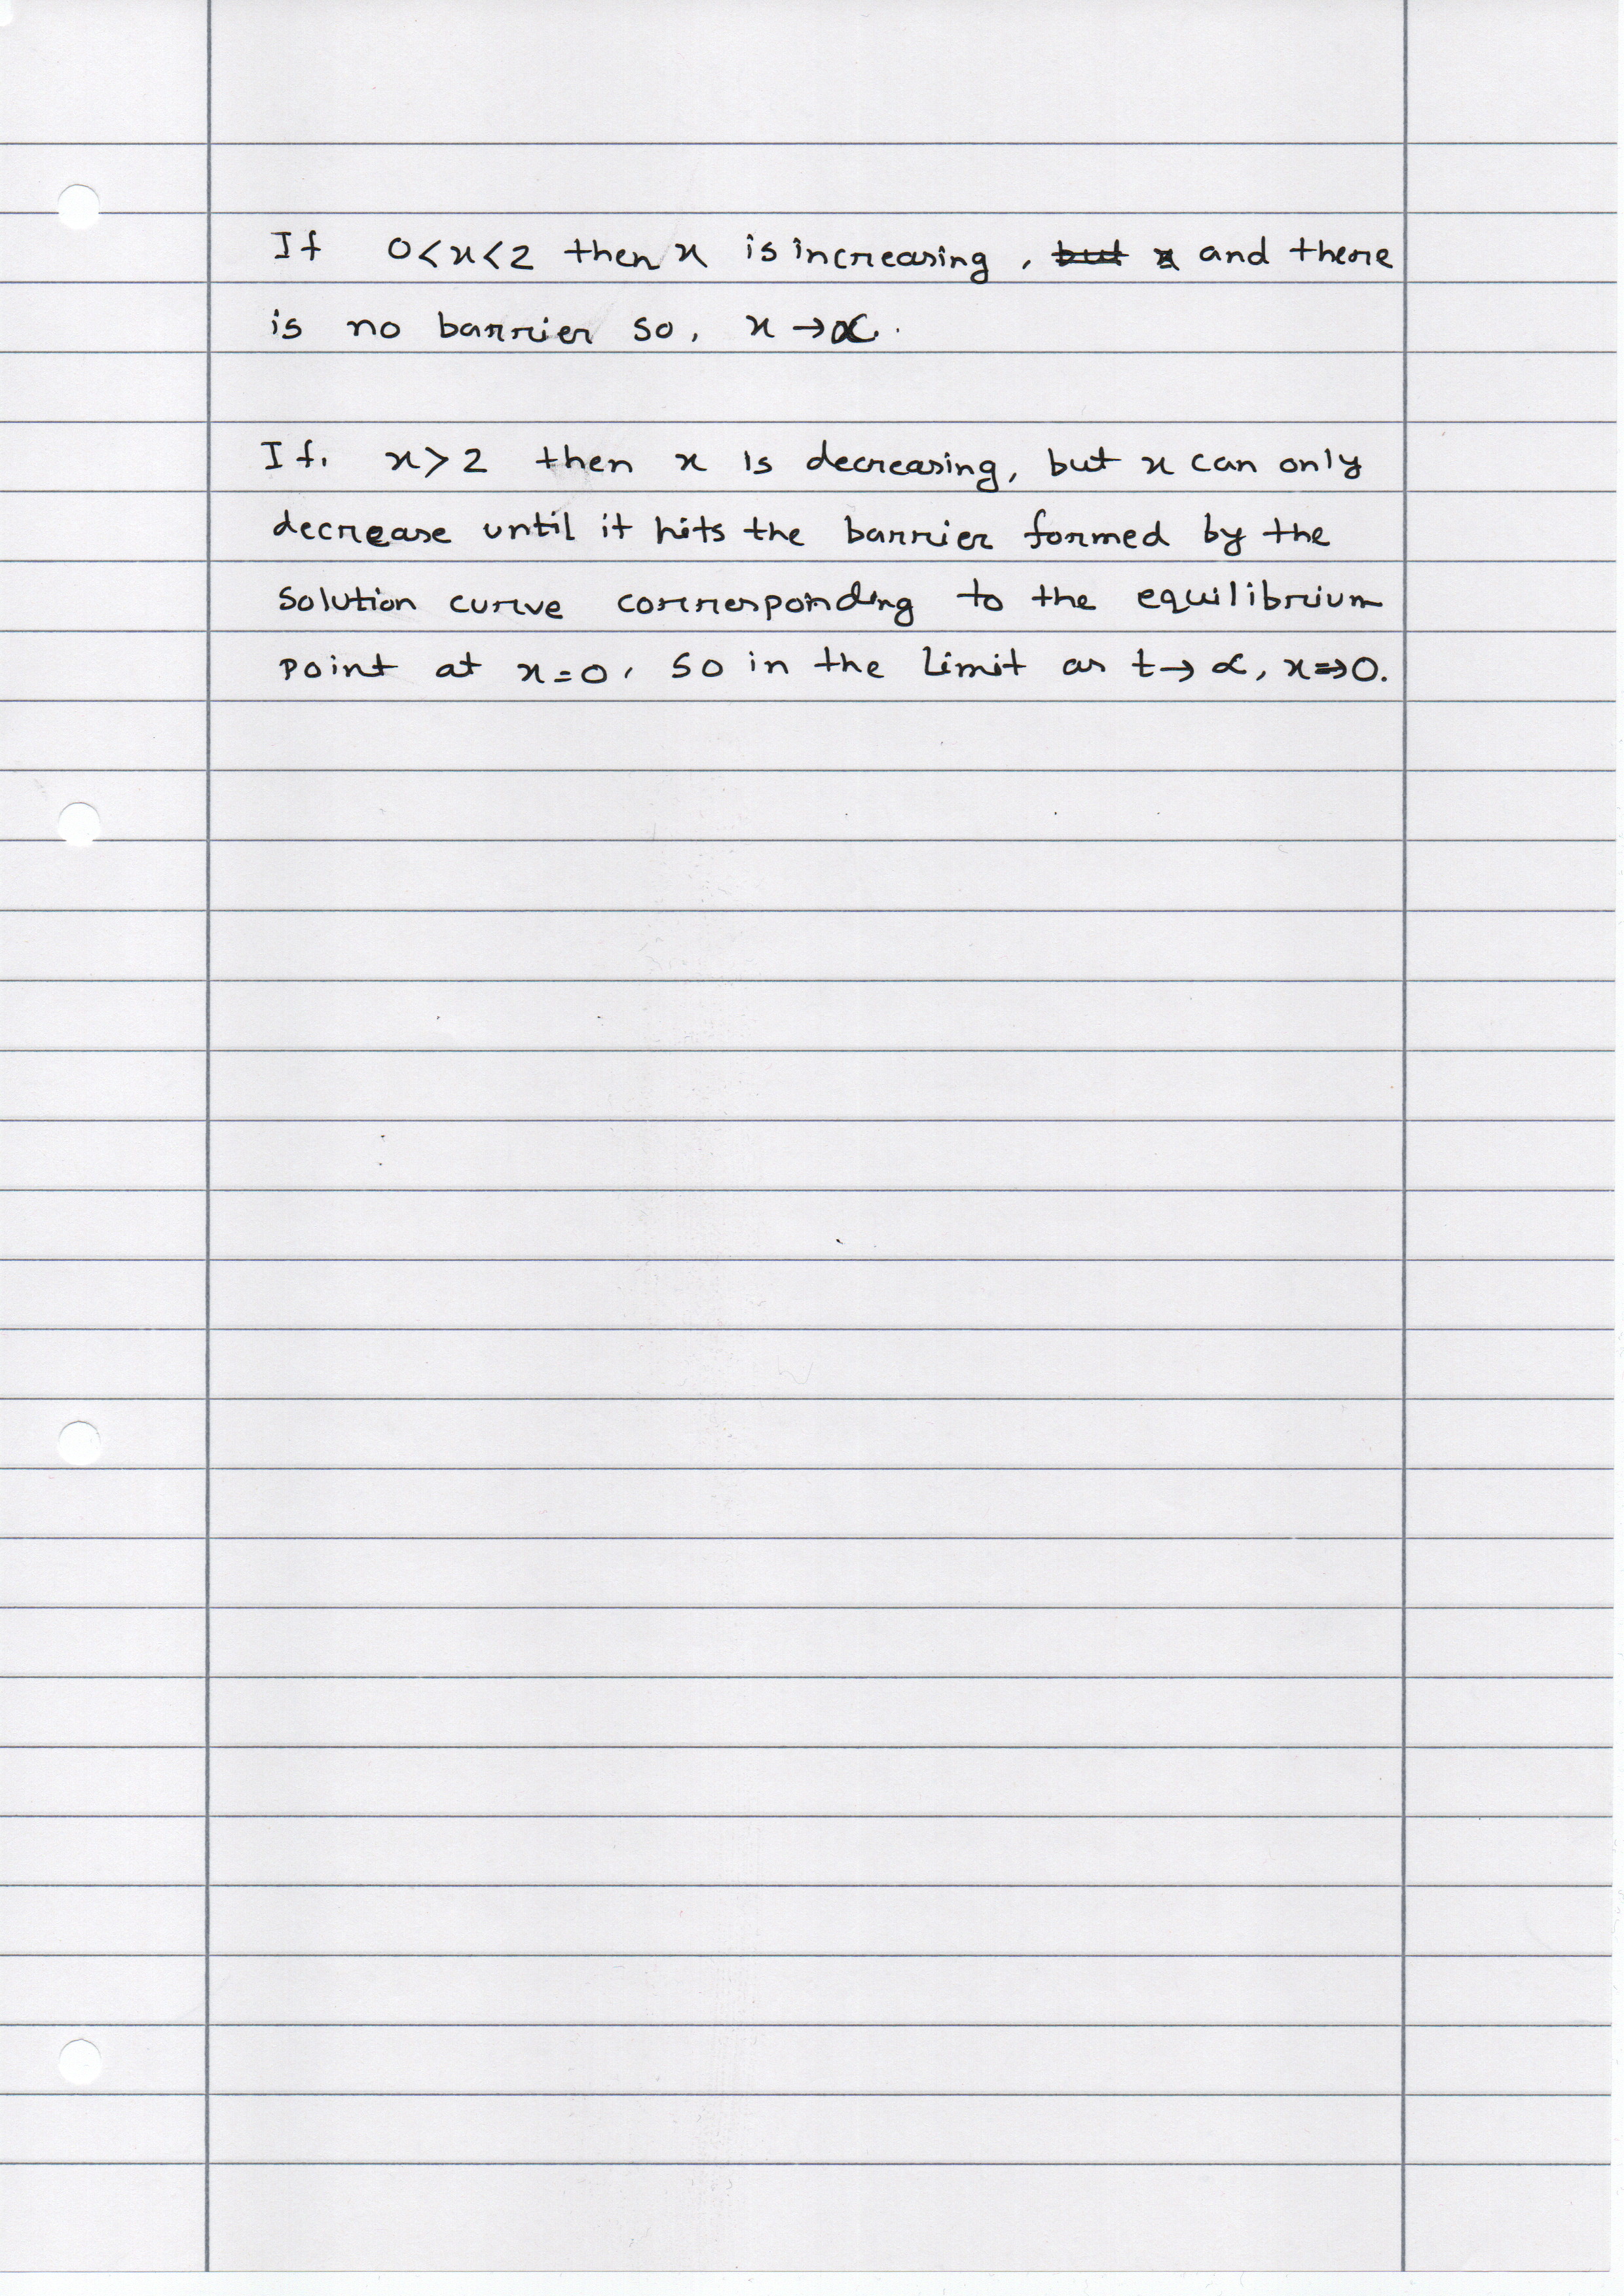 If 0<x<2 then x is increasing, but x and there
is no barrier so, x → ∝.
If. x>2 then x is decreasing, but x can only
decrease until it hits the barrier formed by the
solution curve corresponding to the equilibrium
point at x=0, so in the limit as t→ ∝, x⇒0.